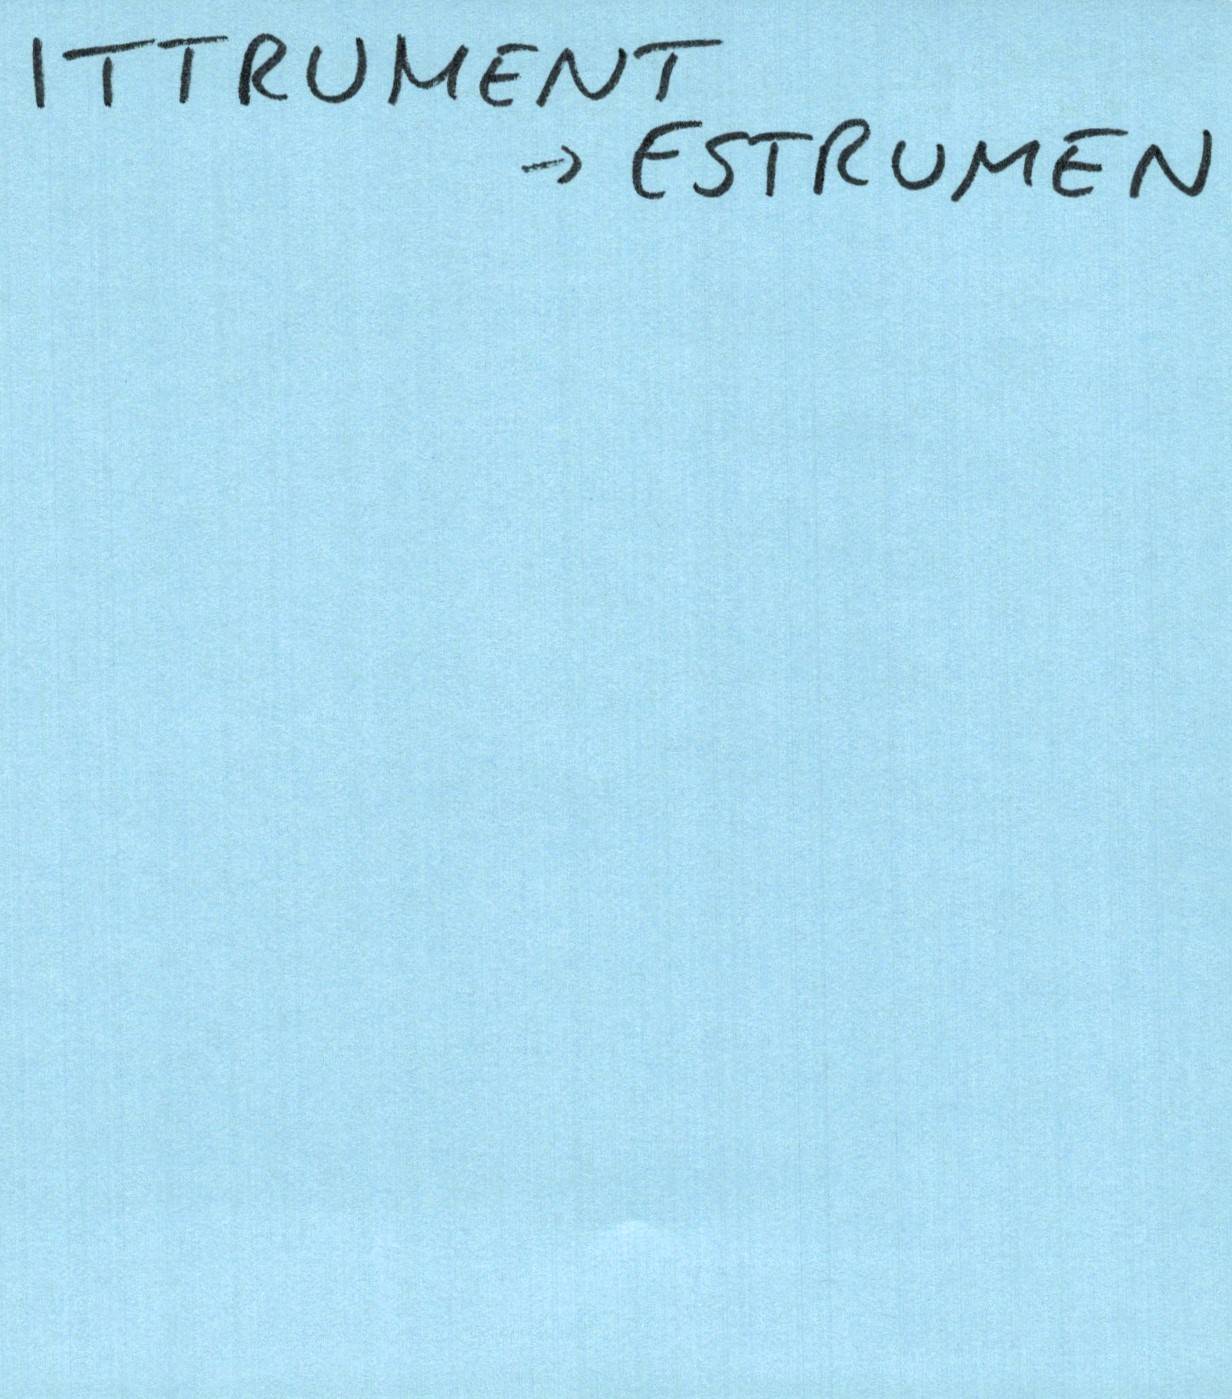 ITTRUMENT
→ ESTRUMEN